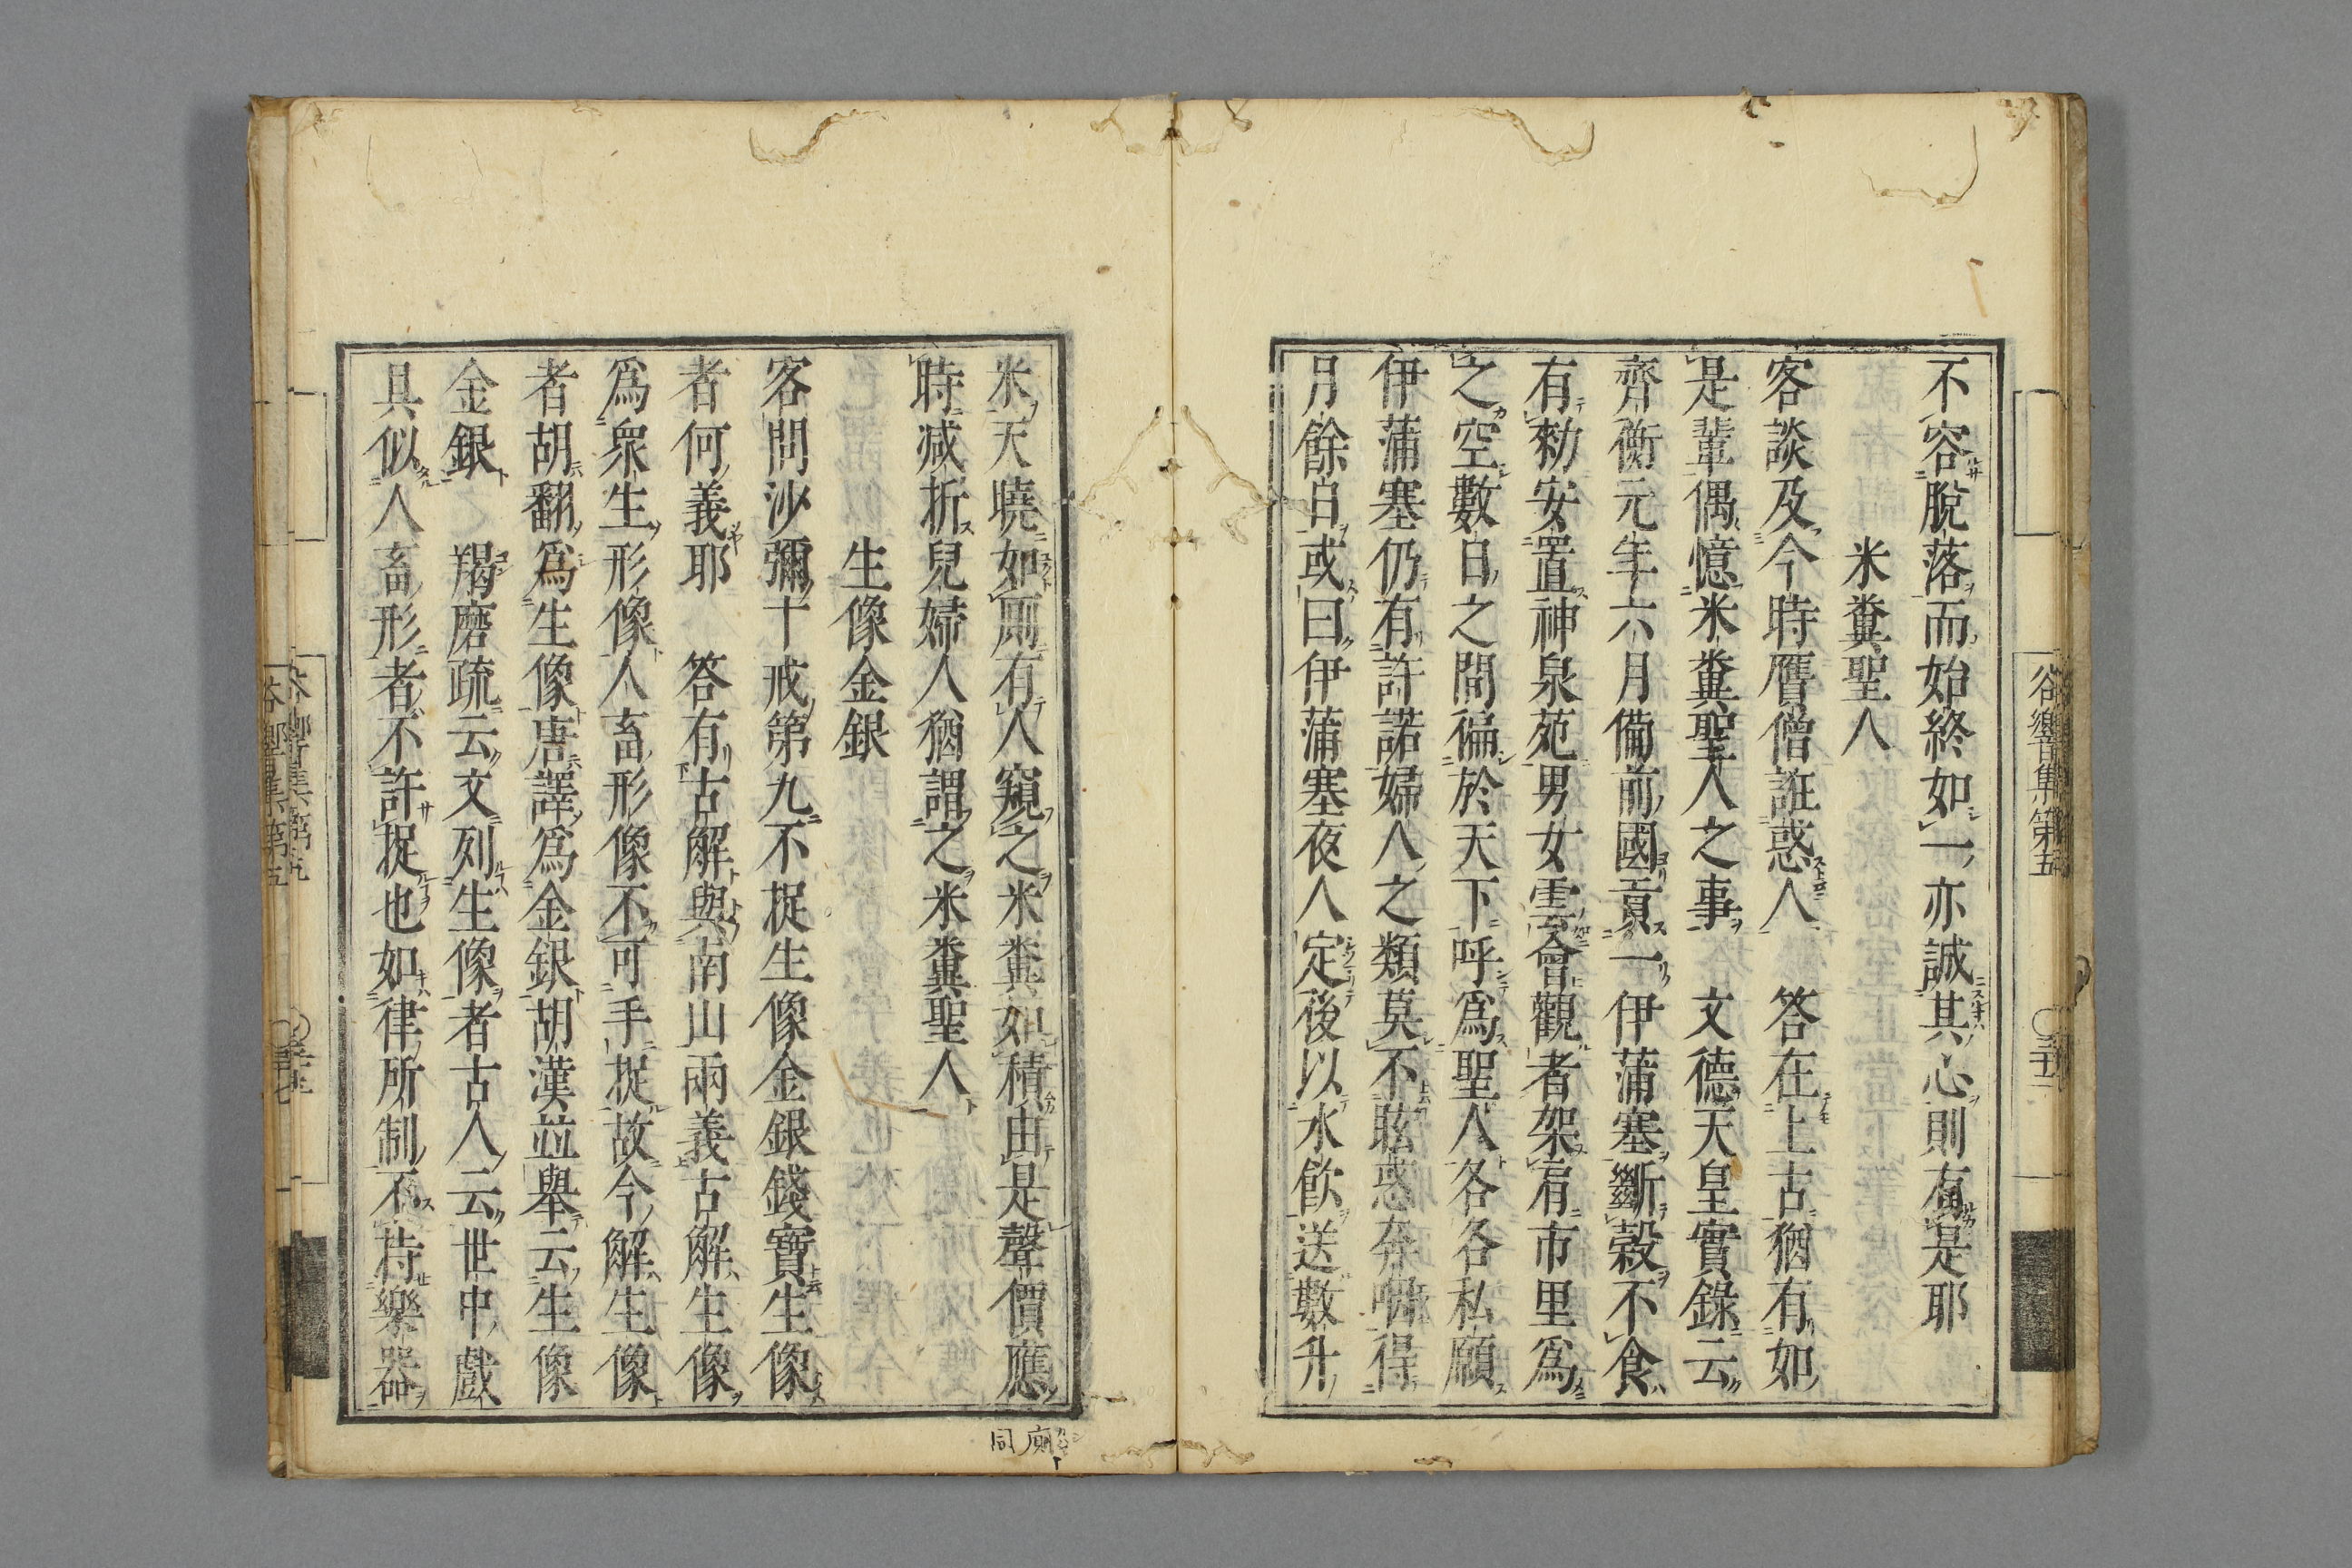 不容脫落而始終如一亦誠其心則有是耶
米糞聖人
客談及今時贋僧誑惑人　答在上古猶有如
是輩偶憶米糞聖人之事　文德天皇實錄云
齊衡元年六月備前國貢一伊蒲塞斷穀不食
有勑安置神泉苑男女雲會觀者架肩市里爲
之空數日之間徧於天下呼爲聖人各各私願
伊蒲塞仍有許諾婦人之類莫不眩惑奔咽得
月餘日或曰伊蒲塞夜人定後以水飮送數升
米天曉如厠有人窺之米糞如積由是聲價應
時減折兒婦人猶謂之米糞聖人
生像金銀
客問沙彌十戒第九不捉生像金銀錢寶生像
者何義耶　答有古解與南山兩義古解生像
爲衆生形像人畜形像不可手捉故今解生像
者胡翻爲生像唐譯爲金銀胡漢竝舉云生像
金銀　羯磨疏云文列生像者古人云世中戲
具似人畜形者不許捉也如律所制不持樂器
谷響集第五